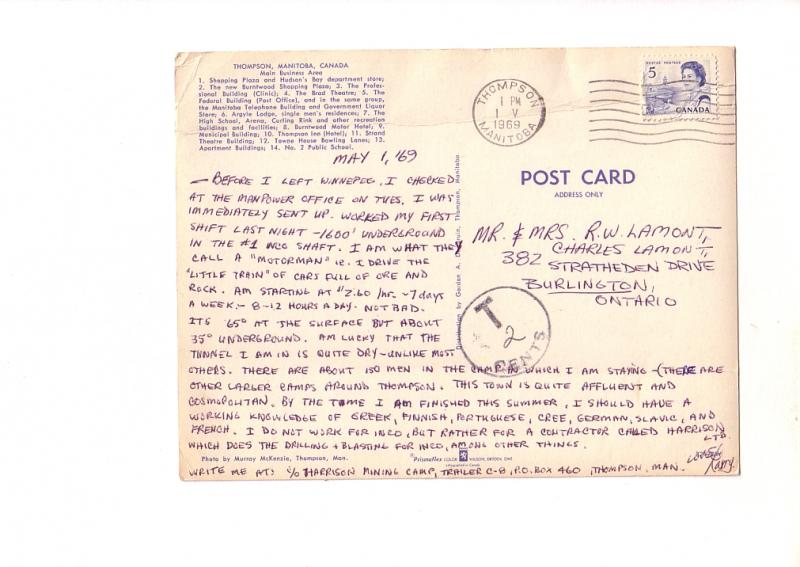 THOMPSON, MANITOBA, CANADA
Main Business Area
1. Shopping Plaza and Hudson's Bay department store;
2. The new Burntwood Shopping Plaza; 3. The Profes-
sional Building (Clinic); 4. The Brad Theatre; 5. The
Federal Building (Post Office), and in the same group,
the Manitoba Telephone Building and Government Liquor
Store; 6. Argyle Lodge, single men's residences; 7. The
High School, Arena, Curling Rink and other recreation
buildings and facilities; 8. Burntwood Motor Hotel; 9.
Municipal Building; 10. Thompson Inn (Hotel); 11. Strand
Theatre Building; 12. Towne House Bowling Lanes; 13.
Apartment Buildings; 14. No. 2 Public School.
MAY 1, '69
— BEFORE I LEFT WINNEPEG, I CHECKED
AT THE MANPOWER OFFICE ON TUES. I WAS
IMMEDIATELY SENT UP. WORKED MY FIRST
SHIFT LAST NIGHT -1600' UNDERGROUND
IN THE #1 INCO SHAFT. I AM WHAT THEY
CALL A "MOTORMAN" IE. I DRIVE THE
"LITTLE TRAIN" OF CARS FULL OF ORE AND
ROCK. AM STARTING AT $2.60/hr. ~7 days
A WEEK - 8-12 HOURS A DAY. NOT BAD.
ITS 65° AT THE SURFACE BUT ABOUT
35° UNDERGROUND. AM LUCKY THAT THE
TUNNEL I AM IN IS QUITE DRY-UNLIKE MOST
OTHERS. THERE ARE ABOUT 150 MEN IN THE CAMP IN WHICH I AM STAYING -(THERE ARE
OTHER LARGER CAMPS AROUND THOMPSON. THIS TOWN IS QUITE AFFLUENT AND
COSMOPOLITAN. BY THE TIME I AM FINISHED THIS SUMMER, I SHOULD HAVE A
WORKING KNOWLEDGE OF GREEK, FINNISH, PORTUGUESE, CREE, GERMAN, SLAVIC, AND
FRENCH. I DO NOT WORK FOR INCO, BUT RATHER FOR A CONTRACTOR CALLED HARRISON
LTD.
WHICH DOES THE DRILLING + BLASTING FOR INCO, AMONG OTHER THINGS.
WRITE ME AT: C/O HARRISON MINING CAMP, TRAILER C-8, P.O. BOX 460, THOMPSON, MAN.
Photo by Murray McKenzie, Thompson, Man.
Prismaflex COLOR WILSON, DRYDEN, ONT.
Distribution by Gordon A. Thompson, Manitoba
POST CARD
ADDRESS ONLY
MR. & MRS. R.W. LAMONT,
CHARLES LAMONT,
382 STRATHEDEN DRIVE
BURLINGTON,
ONTARIO
THOMPSON
1 PM
1 V
1969
MANITOBA
5
CANADA
T
2
CENTS